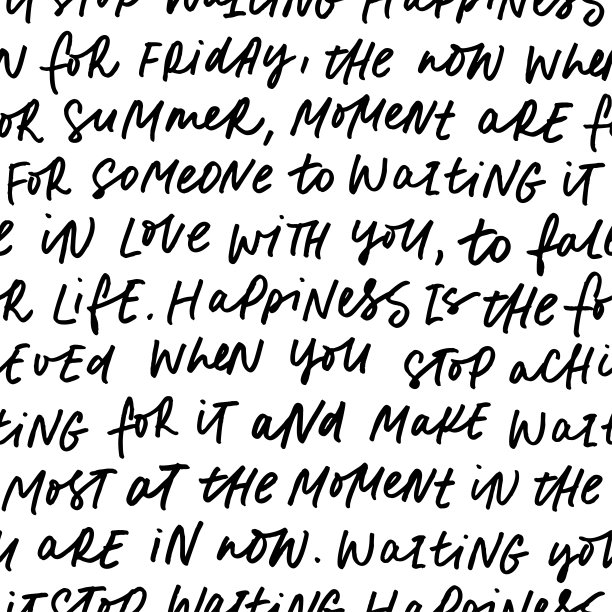 STOP WAITING HAPPINESS
N for FRiDAY, tHe now when
OR SuMmeR, MOMeNt aRE f
FOR SOMeONe to WaItiNG iT
e iN LOVe WiTH you, to fall
R LifE. HaPPiNeSS Is tHe fo
EVEd WHeN YOU STOP aCHi
tiNG for iT aNd MaKE Wait
MOST aT tHe MOMeNt iN tHe
u aRE iN NOW. WaItiNG you
iT STOP WaItiNG HaPPiNeSS